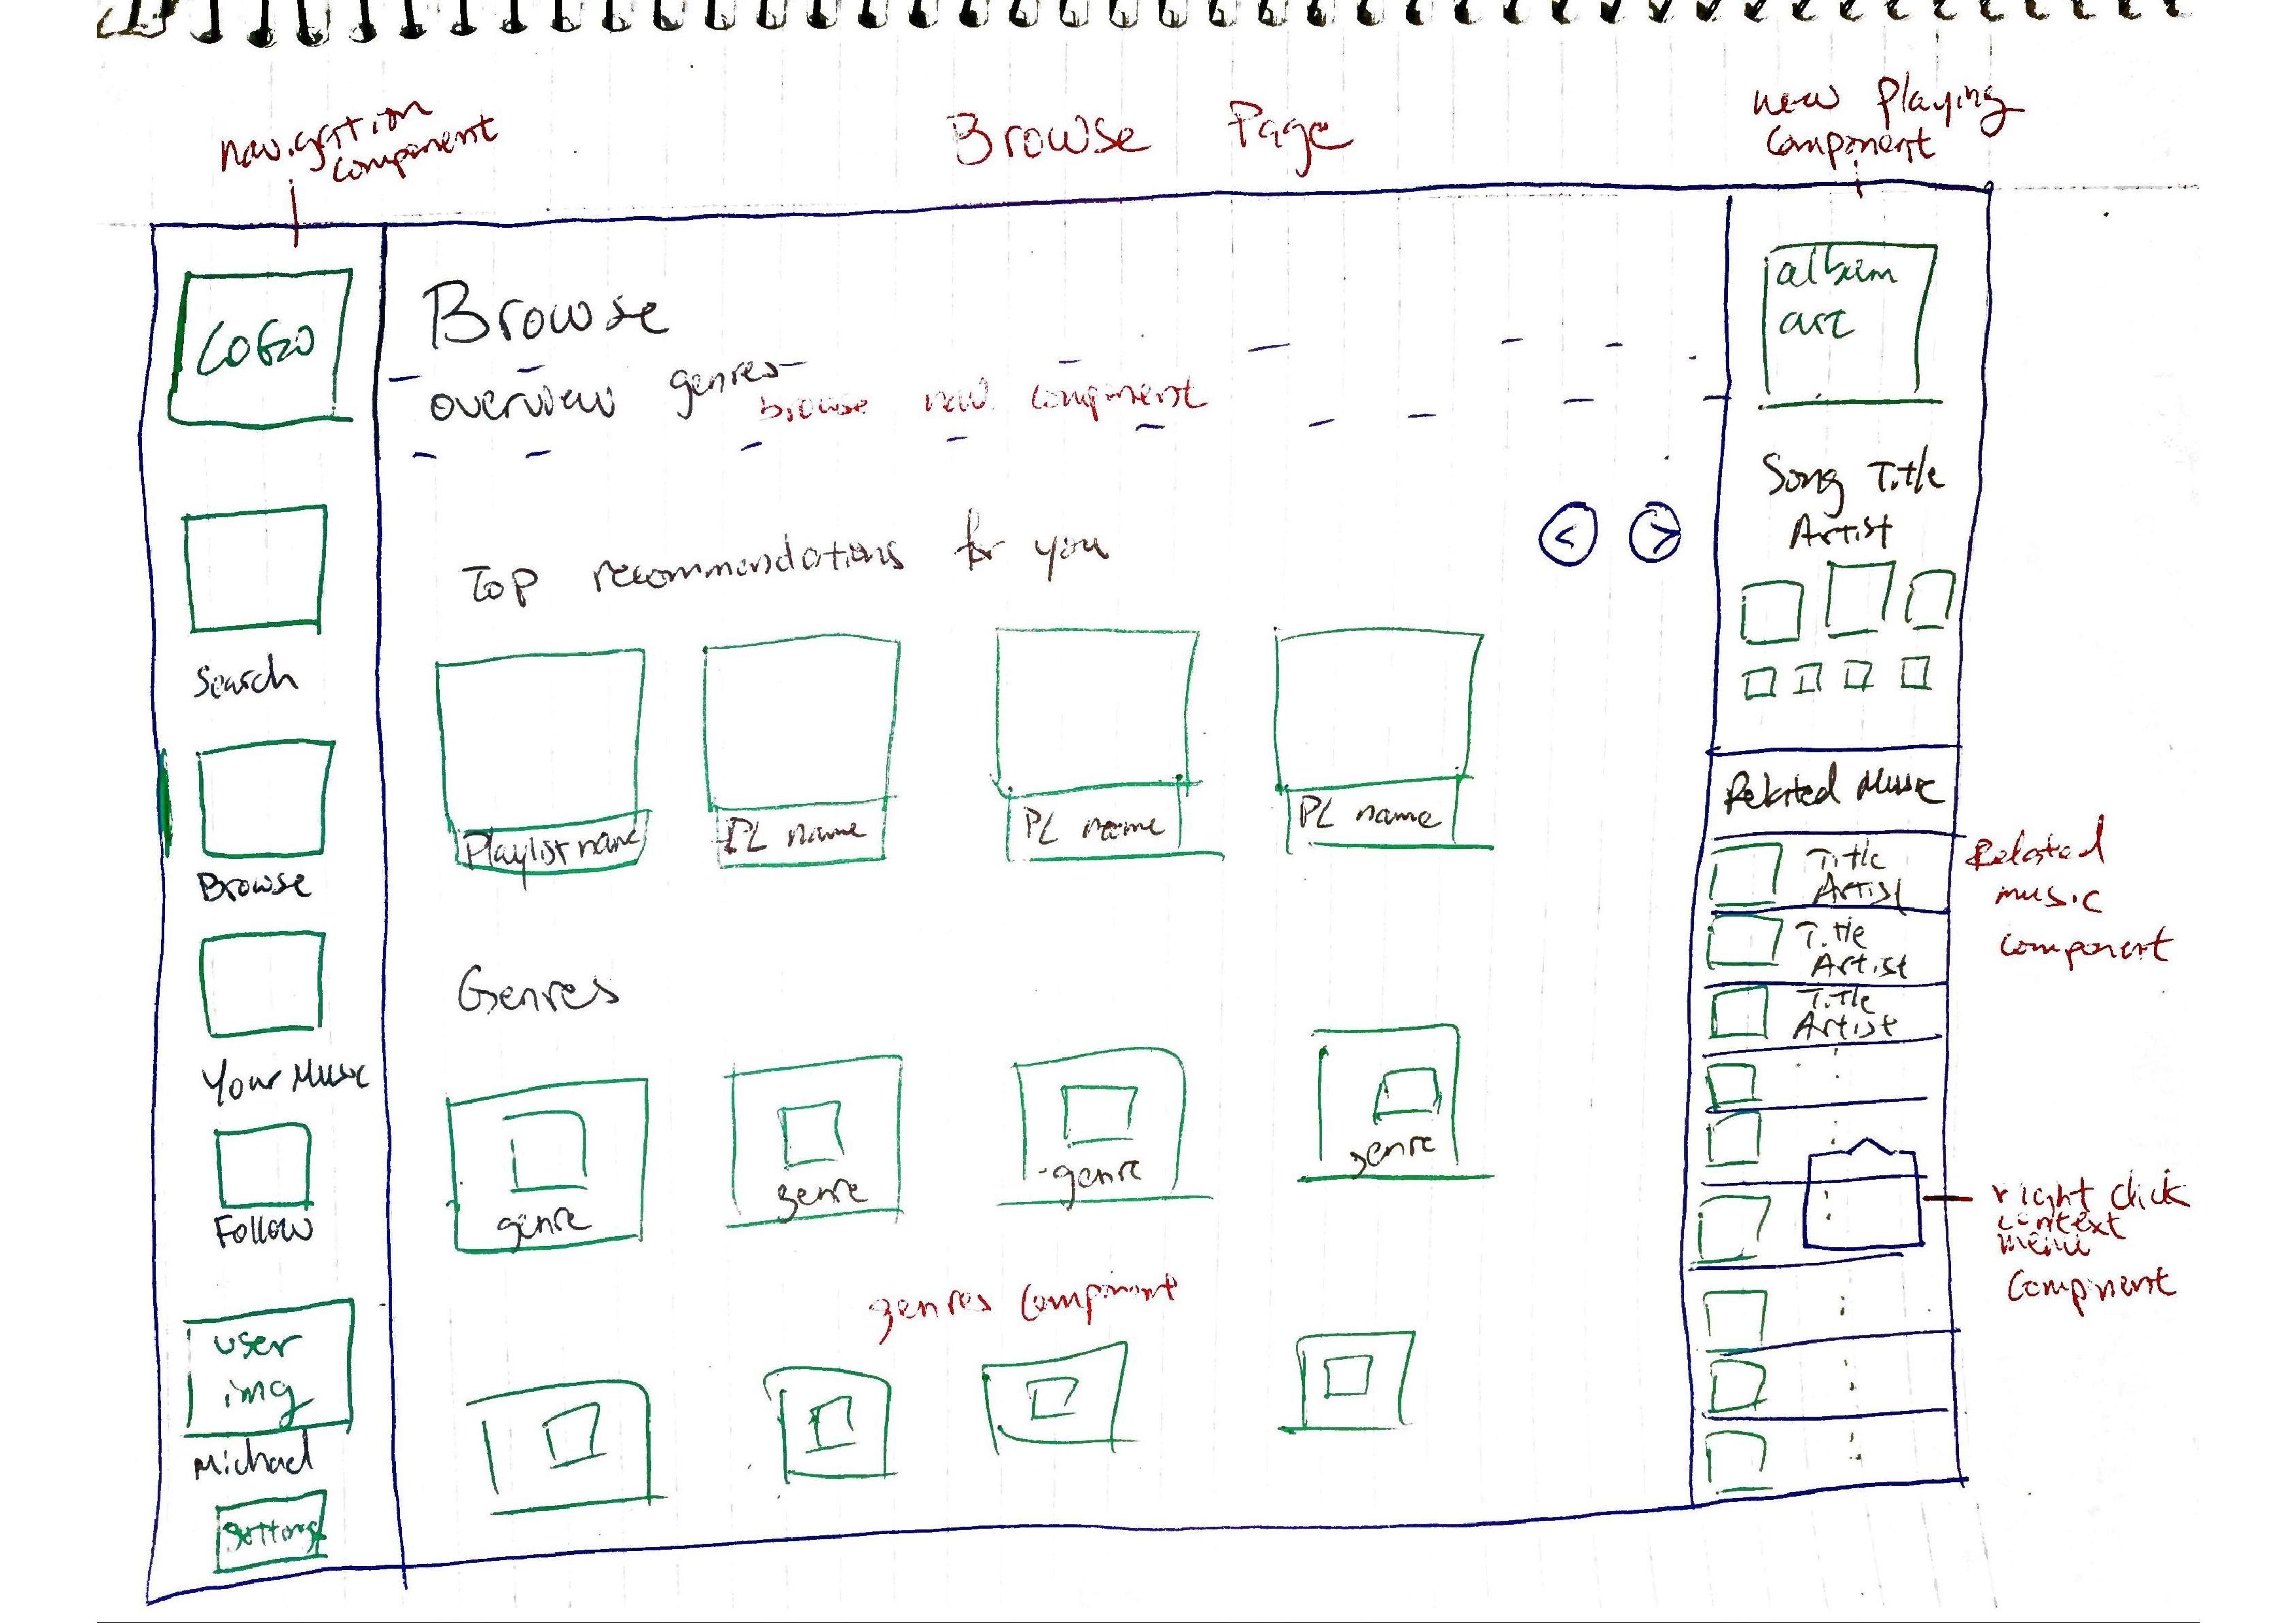 navigation
component
Browse Page
now playing
component
LOGO
Search
Browse
Your Music
Follow
user
img
Michael
settings
Browse
overview genres
browse nav component
Top recommendations for you
< >
Playlist name
PL name
PL name
PL name
Genres
genre
genre
genre
genre
genres component
album
art
Song Title
Artist
Related Music
Title
Artist
Title
Artist
Title
Artist
Related
music
component
right click
context
menu
component